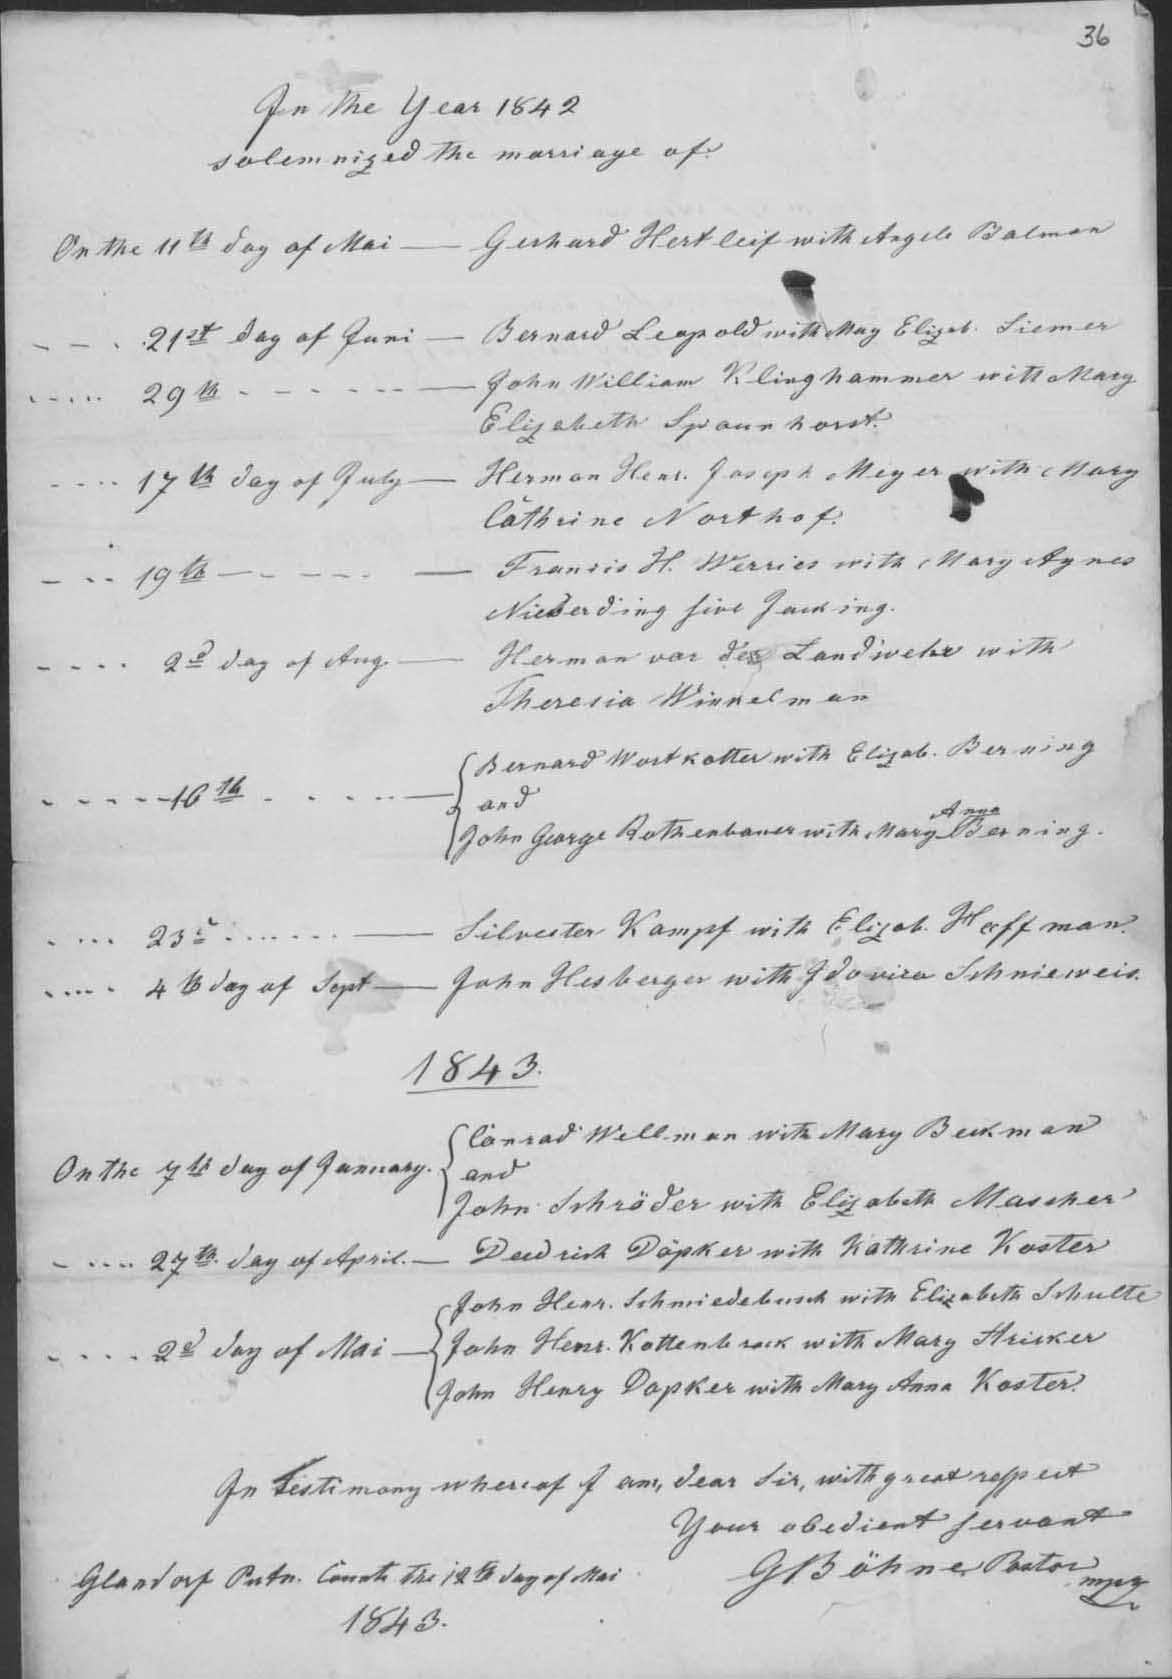 36
In the Year 1842
solemnized the marriage of:
On the 11th day of Mai — Gerhard Hertleif with Angela Balman
- - - 21st day of Juni — Bernard Leopold with May Elizab. Siemer
..... 29th - - - - - — John William Klinghammer with Mary
Elizabeth Spaunhorst.
- - - - 17th day of July — Herman Henr. Joseph Meyer with Mary
Cathrine Northof.
- - - 19th - - - - - — Francis H. Werries with Mary Agnes
Nieberding sive Jacking.
- - - - 2d day of Aug. — Herman von der Landwehr with
Theresia Winkelman
- - - - - 16th - - - - - — Bernard Wortkotter with Elizab. Berning
and
Anna
John George Rothenbauer with Mary Berning.
- ... 23d ....... — Silvester Kampf with Elizab. Hoffman.
..... 4th day of Sept — John Hesberger with Schnieweis.
1843.
On the 7th day of January. Conrad Wellman with Mary Beckman
and
John Schröder with Elizabeth Mascher
- .... 27th day of April. — Deedrich Döpker with Kathrine Koster
John Henr. Schmiedebusch with Elizabeth Schulte
- ... 2d day of Mai — John Henr. Kottenbrock with Mary Stricker
John Henry Dopker with Mary Anna Koster.
In Testimony whereof I am, dear Sir, with great respect
Your obedient servant
Glandorf Putn. County the 18th day of Mai GBöhne, Pastor
mpr
1843.